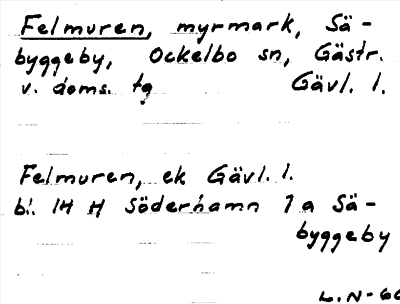 Felmuren, myrmark, Sä-
byggeby, Ockelbo sn, Gästr.
v. doms. tg Gävl. l.
Felmuren, ek Gävl. l.
bl. 14 H Söderhamn 1 a Sä-
byggeby
L.N-60